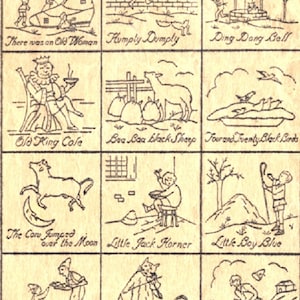 There was an Old Woman
Humpty Dumpty
Ding Dong Bell
Old King Cole
Baa Baa black Sheep
Four and Twenty Black Birds
The Cow Jumped
over the Moon
Little Jack Horner
Little Boy Blue